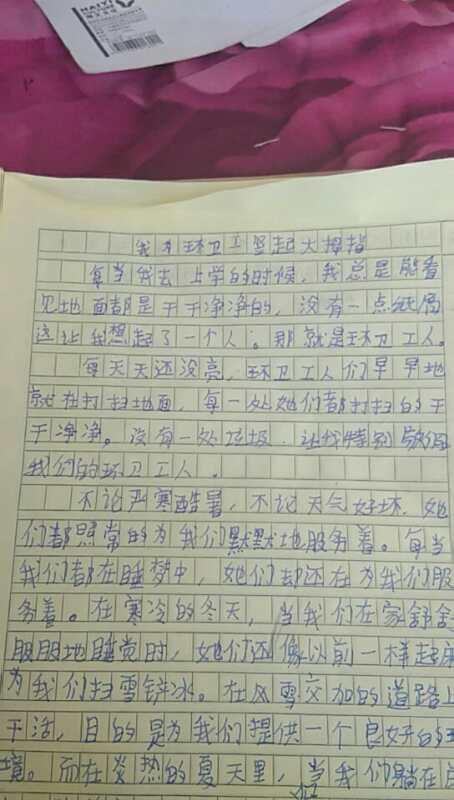 HAIYI
我为环卫工竖起大拇指
每当我去上学的时候,我总是能看
见地面都是干干净净的,没有一点纸屑
这让我想起了一个人。那就是环卫工人。
每天天还没亮,环卫工人们早早地
就在打扫地面,每一处她们都打扫的干
干净净。没有一处垃圾.让我特别敬佩
我们的环卫工人.
不论严寒酷暑,不论天气好坏,她
们都照常的为我们默默地服务着。每当
我们都在睡梦中,她们却还在为我们服
务着。在寒冷的冬天,当我们在家舒舍
服服地睡觉时,她们还像以前一样起床
为我们扫雪铲冰。在风雪交加的道路上
干活,目的是为我们提供一个良好的环
境。而在炎热的夏天里,当我们躺在